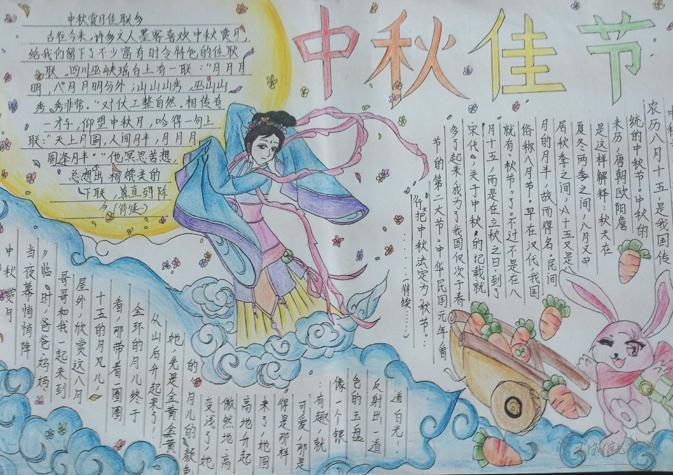 中秋佳节
中秋赏月佳联多
古往今来,许多文人墨客喜欢中秋赏月
给我们留下了不少富有时令特色的佳联
联。四川巫峡瑶台上有一联:“月月月
明,八月月明分外;山山山秀,巫山山
秀非常。”对仗工整自然。相传有
一才子,仰望中秋月,吟得一句上
联:“天上月圆,人间月半,月月月
圆逢月半。”他冥思苦想,
下联,
农历八月十五是我国传
统的中秋节。中秋的
来历,唐朝欧阳詹
是这样解释:秋天在
夏冬两季之间,八月又
居秋季之间,八十五又是
月的月半,故而得名。民间
俗称八月节。早在汉代,我国
就有“秋节”了,不过不是在八
月十五,而是在立秋之日。到了
宋代,关于中秋的记载就
多了起来,成为了我国仅次于春
节的第二大节。中华民国元年
把中秋法定为“秋节”
中秋赏月
当夜幕悄悄降
临时,爸爸妈妈
哥哥和我一起来到
屋外,欣赏这八月
十五的月儿。
看,那带着一圈圈
金环的月儿终于
从山后升起来了
她先是金黄金黄
的,月儿的颜色
变浅了,她
傲然地高
高地升起
来了,地圆
得是那样
可爱,那是
有趣,就
像一个银
色的玉盘
反射出一道
道白光